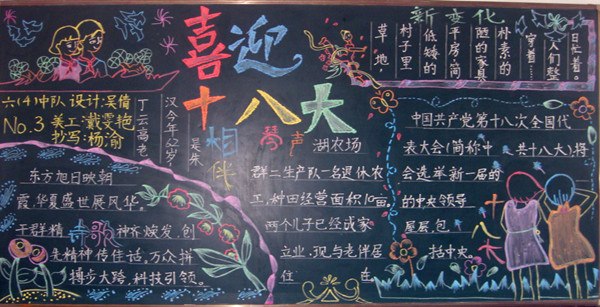 喜迎
十八大
六(4)中队 设计:吴倩
No.3 美工:戴雯艳
抄写:杨渝
丁云高老
汉今年62岁,
吴东
相伴
琴声
湖农场
群二生产队一名退休农
工,种田经营面积10亩,
两个儿子已经成家
立业,现与老伴居
住 在
东方旭日映朝
霞,华夏盛世展风华。
干群精 神齐焕发,创
诗歌
先精神传佳话,万众拼
搏步大跨,科技引领。
新变化
草地,
村子里
低矮的
平房,简
陋的家具
朴素的
穿着……
人们整
日忙着。
中国共产党第十八次全国代
表大会(简称中 共十八大),将
会选举新一届的
的中央领导
层层,包
括中央。
十八大